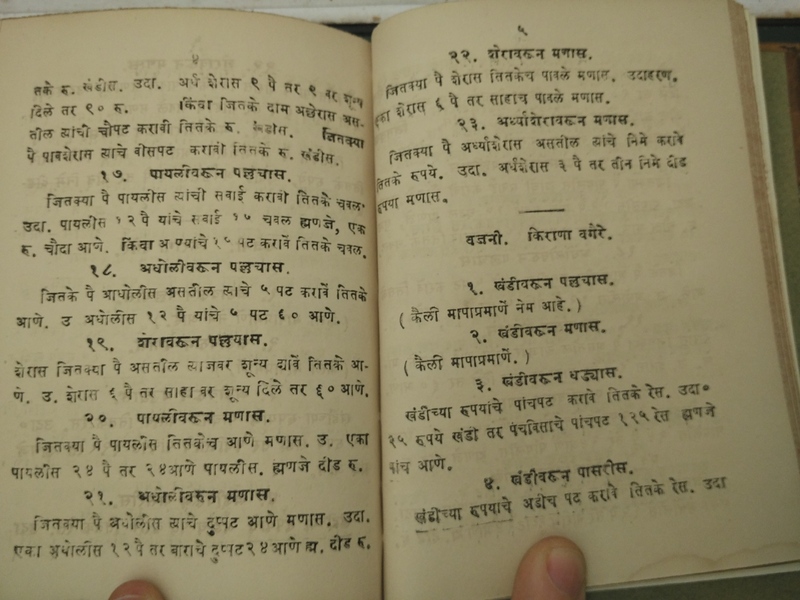 ४
तके रु. खंडीस. उदा. अर्ध शेरास ९ पै तर ९ वर शून्य
दिले तर ९० रु. किंवा जितके दाम अछेरास अस-
तील त्यांची चौपट करावी तितके रु. खंडीस. जितक्या
पै पावशेरास त्याचे वीसपट करावी तितके रु. खंडीस.
१७. पायलीवरून पल्लयास.
जितक्या पै पायलीस त्यांची सवाई करावी तितके चवल.
उदा. पायलीस १२ पै यांचे सवाई १५ चवल ह्मणजे, एक
रु. चौदा आणे. किंवा आण्यांचे १५ पट करावें तितके चवल.
१८. अधोलीवरून पल्लयास.
जितके पै आधोलीस असतील त्याचे ५ पट करावें तितके
आणे. उ अधोलीस १२ पै यांचे ५ पट ६० आणे.
१९. शेरावरून पल्लयास.
शेरास जितक्या पै असतील त्याजवर शून्य द्यावें तितके आ-
णे. उ. शेरास ६ पै तर साहा वर शून्य दिले तर ६० आणे.
२०. पायलीवरून मणास.
जितक्या पै पायलीस तितकेच आणे मणास. उ. एका
पायलीस २४ पै तर २४आणे पायलीस. ह्मणजे दीड रु.
२१. अधोलीवरून मणास.
जितक्या पै अधोलीस त्याचे दुप्पट आणे मणास. उदा.
एका अधोलीस १२ पै तर बाराचे दुप्पट २४ आणे ह्म. दीड रु.
५
२२. शेरावरून मणास.
जितक्या पै शेरास तितकेच पावले मणास. उदाहरण.
एका शेरास ६ पै तर साहाच पावले मणास.
२३. अर्ध्याशेरावरून मणास.
जितक्या पै अर्ध्याशेरास असतील त्यांचे निमे करावे
तितके रुपये. उदा. अर्धशेरास ३ पै तर तीन निमे दीड
रुपया मणास.
वजनी. किराणा वगेरे.
१. खंडीवरून पल्लयास.
( कैली मापाप्रमाणें नेम आहे. )
२. खंडीवरून मणास.
( कैली मापाप्रमाणें. )
३. खंडीवरून धड्यास.
खंडीच्या रुपयांचे पांचपट करावे तितके रेस. उदा॰
२५ रुपये खंडी तर पंचविसाचे पांचपट १२५ रेस ह्मणजे
पांच आणे.
४. खंडीवरून पासरीस.
खंडीच्या रुपयाचे अडीच पट करावे तितके रेस. उदा